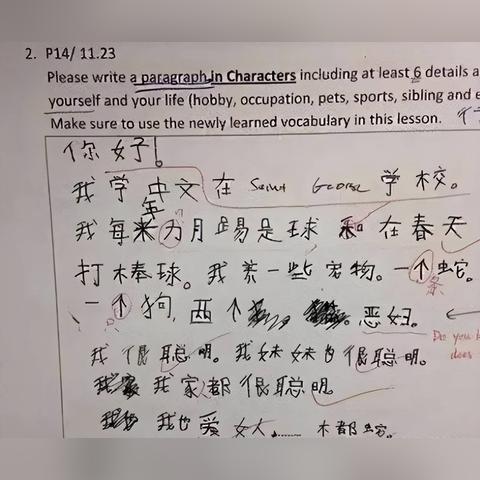 2. P14/ 11.23
Please write a paragraph in Characters including at least 6 details a
yourself and your life (hobby, occupation, pets, sports, sibling and e
Make sure to use the newly learned vocabulary in this lesson.
你好!
我学中文在 Saint George 学校。
年
我每 月踢足球 在春天
打棒球。我养一些宠物。一个蛇。
条
一个狗,西个 。恶
我很聪明。我妹妹也很聪明。
我家都很聪明
人
我也爱 ...... 都蛇。
Do you k
does